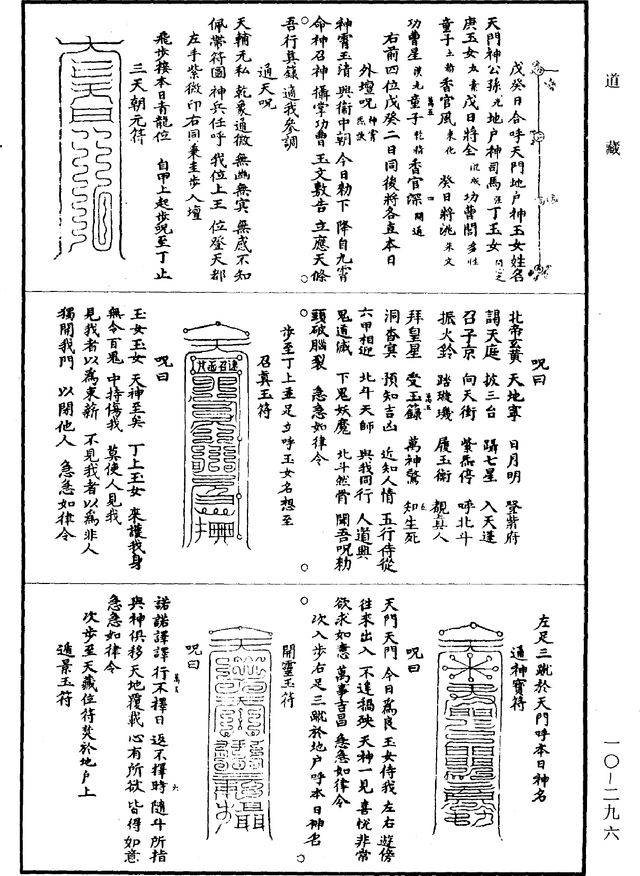 道藏
戊癸日合呼天門地戶神玉女姓名
天門神公孫元 地戶神司馬強 丁玉女
庚玉女太素 戊日將全 功曹閻多性
童子 香官風東化 癸日將洮朱文
功曹星漢元 童子乾格 香官深開通
右前四位戊癸二日同後將各直本日
外壇呪
神霄玉清 興衛中朝 今日勅下 降自九霄
命神召神 攝掌功曹 玉文敷告 立應天條
吾行真籙 適我參調
通天呪
天輔元私 乾象通微 無幽無冥 無感不知
佩帶符圖 神兵任呼 我位上王 位登天都
左手紫微印右同秉圭步入壇
飛步接本日青龍位 自甲上起步視至丁止
三天朝元符
呪曰
北帝玄黃 天地寧 日月明 登紫府
謁天庭 披三台 躡七星 入天蓬
召子京 向天街 紫炁停 呼北斗
振火鈴 踏璇璣 履玉衡 覩真人
拜皇星 受玉籙 萬神驚 知生死
洞杳冥 預知吉凶 近知人情 五行侍從
六甲相迎 北斗天師 與我同行 人道興
鬼道滅 下鬼妖魔 北斗然骨 聞吾呪勅
頭破腦裂 急急如律令
步至丁上並足立呼玉女名想至
召真玉符
呪曰
玉女玉女 天神至矣 丁上玉女 來護我身
無令百鬼 中持傷我 莫使人見我
見我者以為束薪 不見我者以為非人
獨開我門 以閉他人 急急如律令
左足三蹴於天門呼本日神名
通神寶符
呪曰
天門天門 今日為良 玉女侍我 左右遊傍
往來出入 不逢禍殃 天神一見 喜悅非常
欲求如意 萬事吉昌 急急如律令
次入步右足三蹴於地戶呼本日神名
開靈玉符
呪曰
諾諾譯譯 行不擇日 返不擇時 隨斗所指
與神俱移 天地覆載 心有所欲 皆得如意
急急如律令
次步至天藏位符焚於地戶上
遁景玉符
一〇—二九六